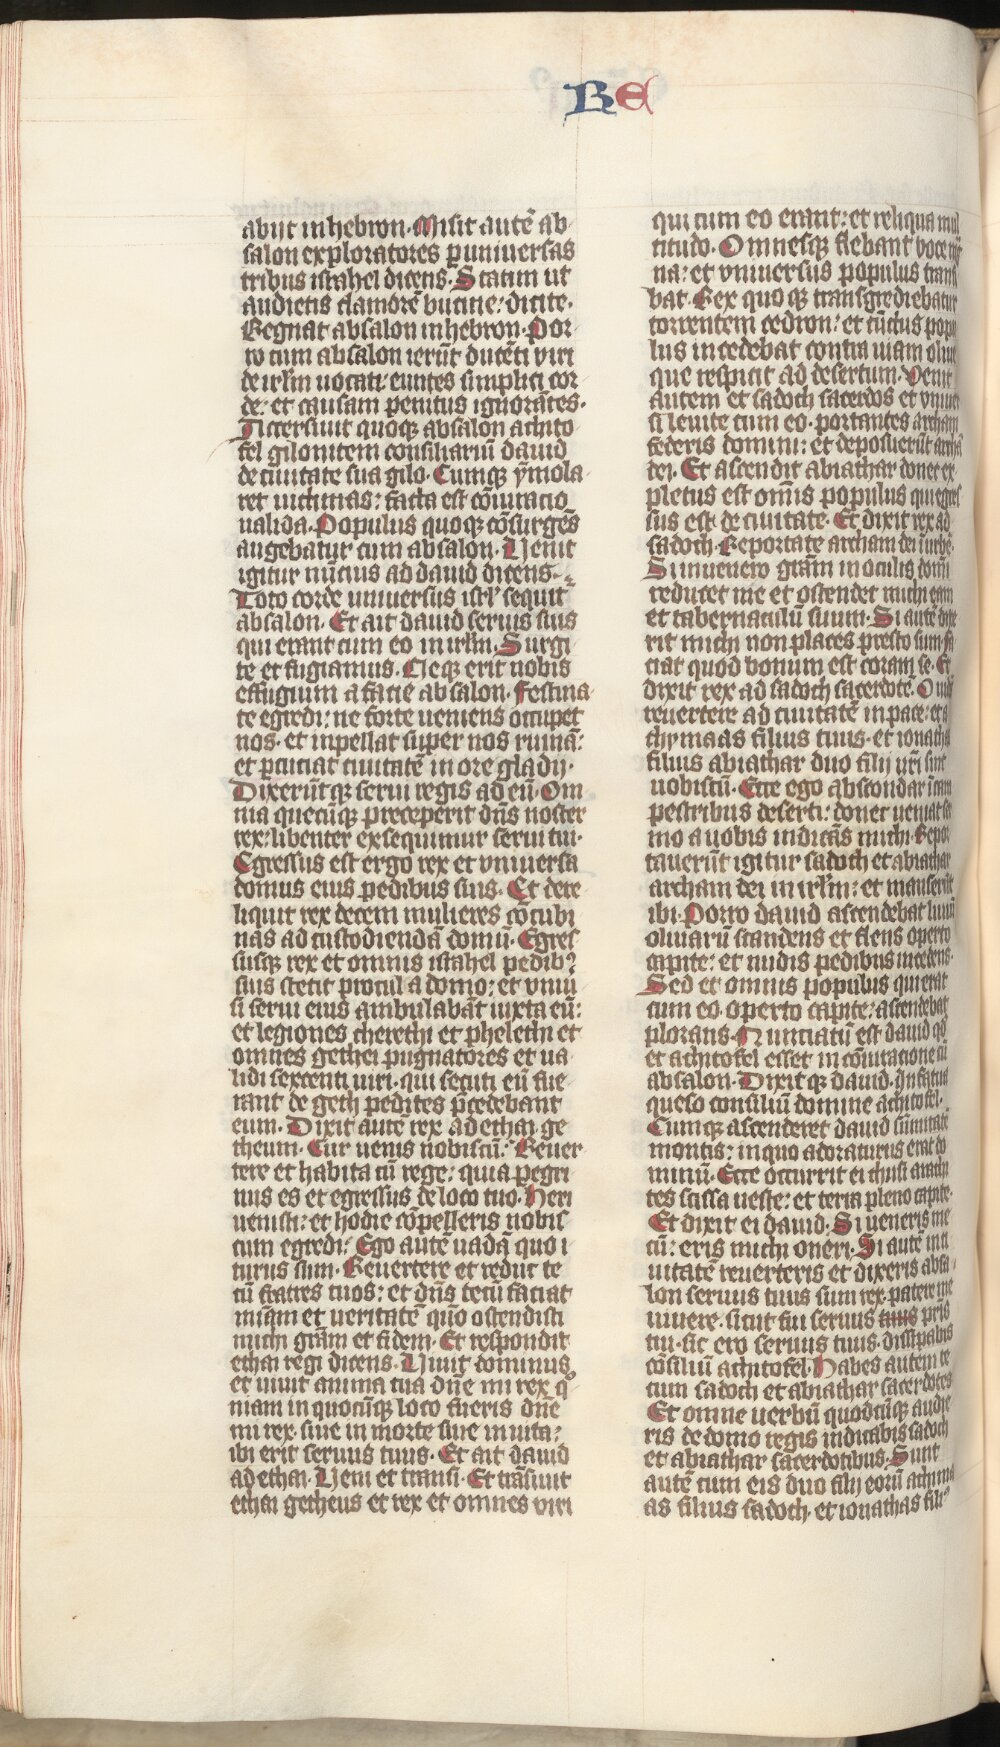 RE
abijt in hebron. Misit autē ab
salon exploratores p uniuersas
tribus israhel dicens. Statim ut
audietis clamorē bucine: dicite.
Regnat absalon in hebron. Por
ro cum absalon ierūt ducēti viri
de irl̄m uocati: euntes simplici cor
de: et causam penitus ignorātes.
Accersiuit quoqꝫ absalon achito
fel gilonitem consiliariū dauid
de ciuitate sua gilo. Cumqꝫ ȳmola
ret uictimas: facta est cōiuracio
ualida. Populus quoqꝫ cōsurgēs
augebatur cum absalon. Uenit
igitur nūcius ad dauid dicens.
Toto corde uniuersus isrl̄ sequit
absalon. Et ait dauid seruis suis
qui erant cum eo in irl̄m. Surgi
te et fugiamus. Neqꝫ erit nobis
effugium a facie absalon. Festina
te egredi: ne forte ueniens occupet
nos. et inpellat super nos ruinā:
et pcuciat ciuitatē in ore gladij.
Dixerūtqꝫ serui regis ad eū. Om
nia quecūqꝫ preceperit dn̄s noster
rex: libenter exsequimur serui tui.
Egressus est ergo rex et vniuersa
domus eius pedibus suis. Et dere
liquit rex decem mulieres cōcubi
nas ad custodiendā domū. Egres
susqꝫ rex et omnis israhel pedibꝰ
suis stetit procul a domo: et vniu
si serui eius ambulabāt iuxta eū:
et legiones cherethi et phelethi et
omnes gethei pugnatores et ua
lidi sexcenti uiri. qui secuti eū fue
rant de geth pedites p̄cedebant
eum. Dixit autē rex ad ethai ge
theum. Cur uenis nobiscū. Reuer
tere et habita cū rege: quia pegri
nus es et egressus de loco tuo. Heri
uenisti: et hodie cōpelleris nobis
cum egredi: Ego autē uadā quo i
turus sum. Reuertere et reduc te
cū fratres tuos: et dn̄s tecū faciat
miām et ueritatē quō ostendisti
michi grām et fidem. Et respondit
ethai regi dicens. Uiuit dominus
et uiuit anima tua dn̄e mi rex qͦ
niam in quocūqꝫ loco fueris dn̄e
mi rex. siue in morte siue in uita:
ibi erit seruus tuus. Et ait dauid
ad ethai. Ueni et transi. Et trāsiuit
ethai getheus et rex et omnes viri
qui cum eo erant: et reliqua mul
titudo. Omnesqꝫ flebant voce
na: et vniuersus populus trans
bat. Rex quoqꝫ transgrediebatur
torrentem cedron: et cūctus popu
lus incedebat contra uiam oliue
que respicit ad desertum. Venit
autem et sadoch sacerdos et vniuer
si leuite cum eo. portantes archam
federis domini: et deposuerūt archā
dei. Et ascendit abiathar donec ex
pletus est omīs populus qui egres
sus est de ciuitate. Et dixit rex ad
sadoch. Reportate archam dei
Si inuenero grām in oculis domī
reducet me et ostendet michi eam
et tabernaculū suum. Si autē dixe
rit michi non places presto sum fa
ciat quod bonum est coram se. Et
dixit rex ad sadoch sacerdotē. O
reuertere ad ciuitatē in pace: et a
chymaas filius tuus. et ionathas
filius abiathar duo filij ur̄i sint
uobiscū. Ecce ego abscondar in cam
pestribus deserti: donec ueniat ser
mo a uobis indicās michi. Repor
tauerūt igitur sadoch et abiathar
archam dei in irl̄m: et manserūt
ibi. Porro dauid ascendebat
oliuarū scandens et flens operto
capite: et nudis pedibus incedens.
Sed et omnis populus qui erat
cum eo. operto capite: ascendebat
plorans. Nunciatū est dauid qd̄
et achitofel esset in cōiuratione cū
absalon. Dixitqꝫ dauid. Infatua
queso consiliū domine achitofel.
Cumqꝫ ascenderet dauid sūmitatē
montis: in quo adoraturus erat do
minū. Ecce occurrit ei chusi arachi
tes scissa ueste: et terra pleno capite.
Et dixit ei dauid. Si ueneris me
cū: eris michi oneri. Si autē in ci
uitatē reuerteris et dixeris absa
lon seruus tuus sum rex. patere me
uiuere. sicut fui seruus tuus pr̄is
tui. sic ero seruus tuus. dissipabis
cōsiliū achitofel. Habes autem te
cum sadoch et abiathar sacerdotes
Et omne uerbū quodcūqꝫ audie
ris de domo regis indicabis sadoch
et abiathar sacerdotibus. Sunt
autē cum eis duo filij eorū achima
as filius sadoch. et ionathas filiꝰ